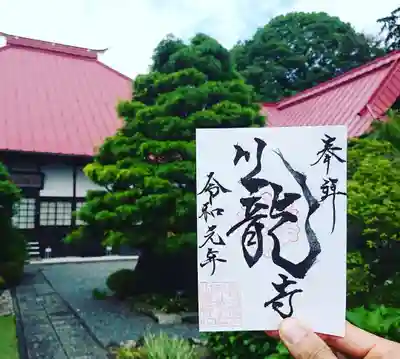 奉拝
龍寺
令和元年